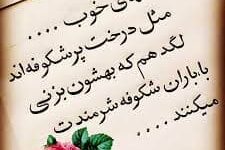 های خوب ....
مثل درخت پرشکوفه‌اند
لگدهم که بهشون بزنی
باباران شکوفه شرمندت
میکنند ....